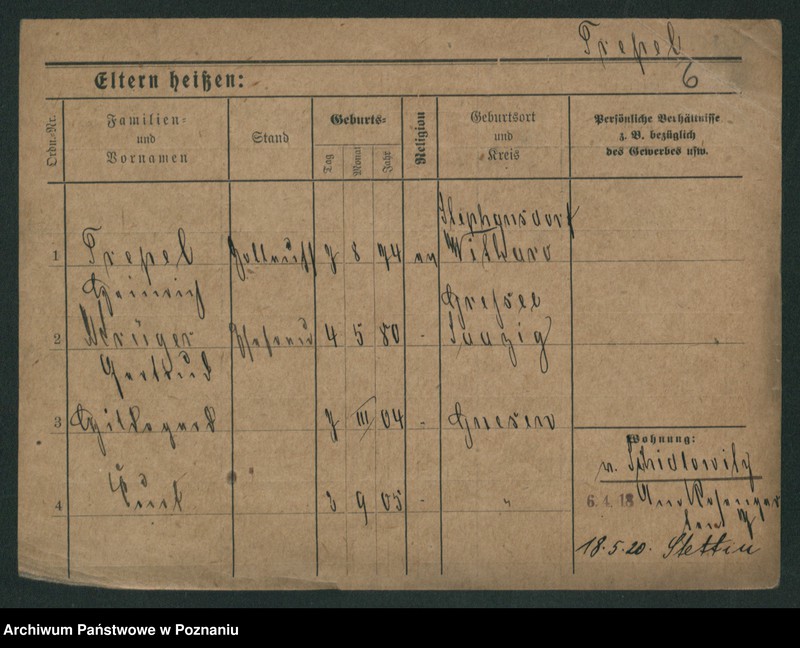 Trepel
6
Eltern heißen:
Ordn.-Nr.
Familien- und Vornamen
Stand
Geburts-
Tag
Monat
Jahr
Religion
Geburtsort und Kreis
Persönliche Verhältnisse z. B. bezüglich des Gewerbes usw.
Stephansdorf
1 Trepel 7 8 74 ev Witkowo
Heinrich
2 Krüger Ehefrau 4 5 80 -
Gertrud
3 Hildegard 7 III 04 - Gnesen
4 Kurt 3 9 05 - "
Wohnung:
v.
6. 4. 18 Am Rosengar
ten 7
18.5.20. Stettin
Archiwum Państwowe w Poznaniu